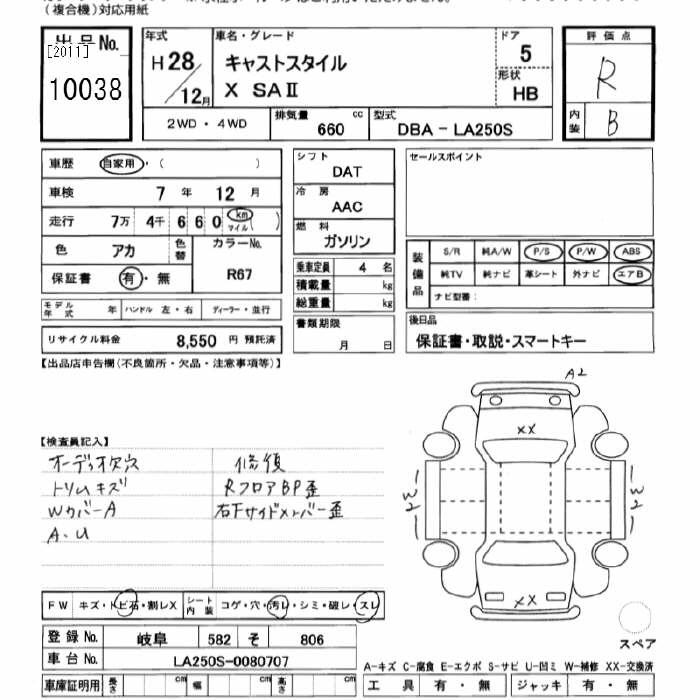 (複合機)対応用紙
出品No.
[2011]
10038
年式
H28/12月
車名・グレード
キャストスタイル
X SAⅡ
ドア
5
形状
HB
2WD・4WD
排気量 660 cc
型式 DBA-LA250S
評価点
R
内装
B
車歴 自家用・( )
車検 7年 12月
走行 7万 4千 6 6 0 km マイル ( )
色 アカ
色替
カラーNo.
R67
保証書 有・無
モデル年式 年 ハンドル 左・右 ディーラー・並行
リサイクル料金 8,550 円 預託済
シフト
DAT
冷房
AAC
燃料
ガソリン
乗車定員 4 名
積載量 kg
総重量 kg
書類期限
月 日
セールスポイント
装備品
S/R 純A/W P/S P/W ABS
純TV 純ナビ 革シート 外ナビ エアB
ナビ型番:
後日品
保証書・取説・スマートキー
【出品店申告欄(不良箇所・欠品・注意事項等)】
【検査員記入】
オーディオ欠穴
トリムキズ
Wカバー A
A.U
修復
RフロアBP歪
右Fサイドメンバー歪
A2
XX
W2
W2
XX
スペア
FW キズ・トビ石・割レX
シート内装 コゲ・穴・汚レ・シミ・破レ・スレ
登録No. 岐阜 582 そ 806
車台No. LA250S-0080707
車庫証明用 長さ cm 幅 cm 高さ cm
A-キズ C-腐食 E-エクボ S-サビ U-凹ミ W-補修 XX-交換済
工具 有・無 ジャッキ 有・無